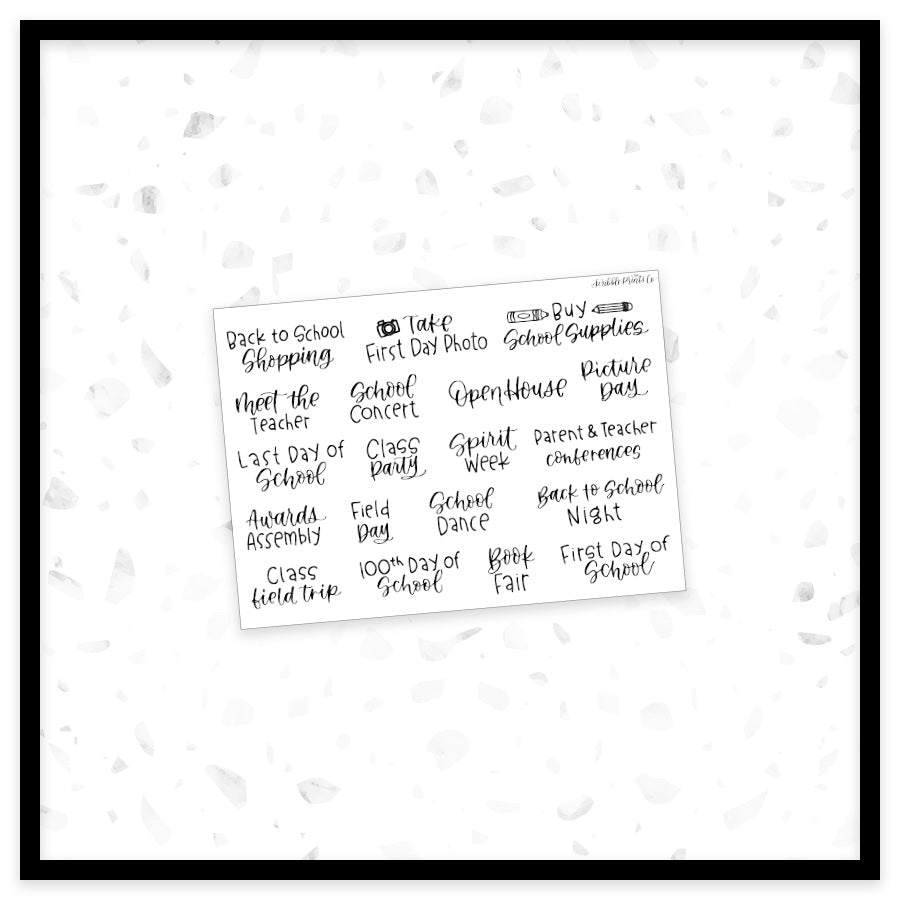 Scribble Prints Co
Back to School
Shopping
Take
First Day Photo
Buy
School Supplies
Meet the
Teacher
School
Concert
Open House
Picture
Day
Last Day of
School
Class
Party
Spirit
Week
Parent & Teacher
conferences
Awards
Assembly
Field
Day
School
Dance
Back to School
Night
Class
field trip
100th Day of
School
Book
Fair
First Day of
School